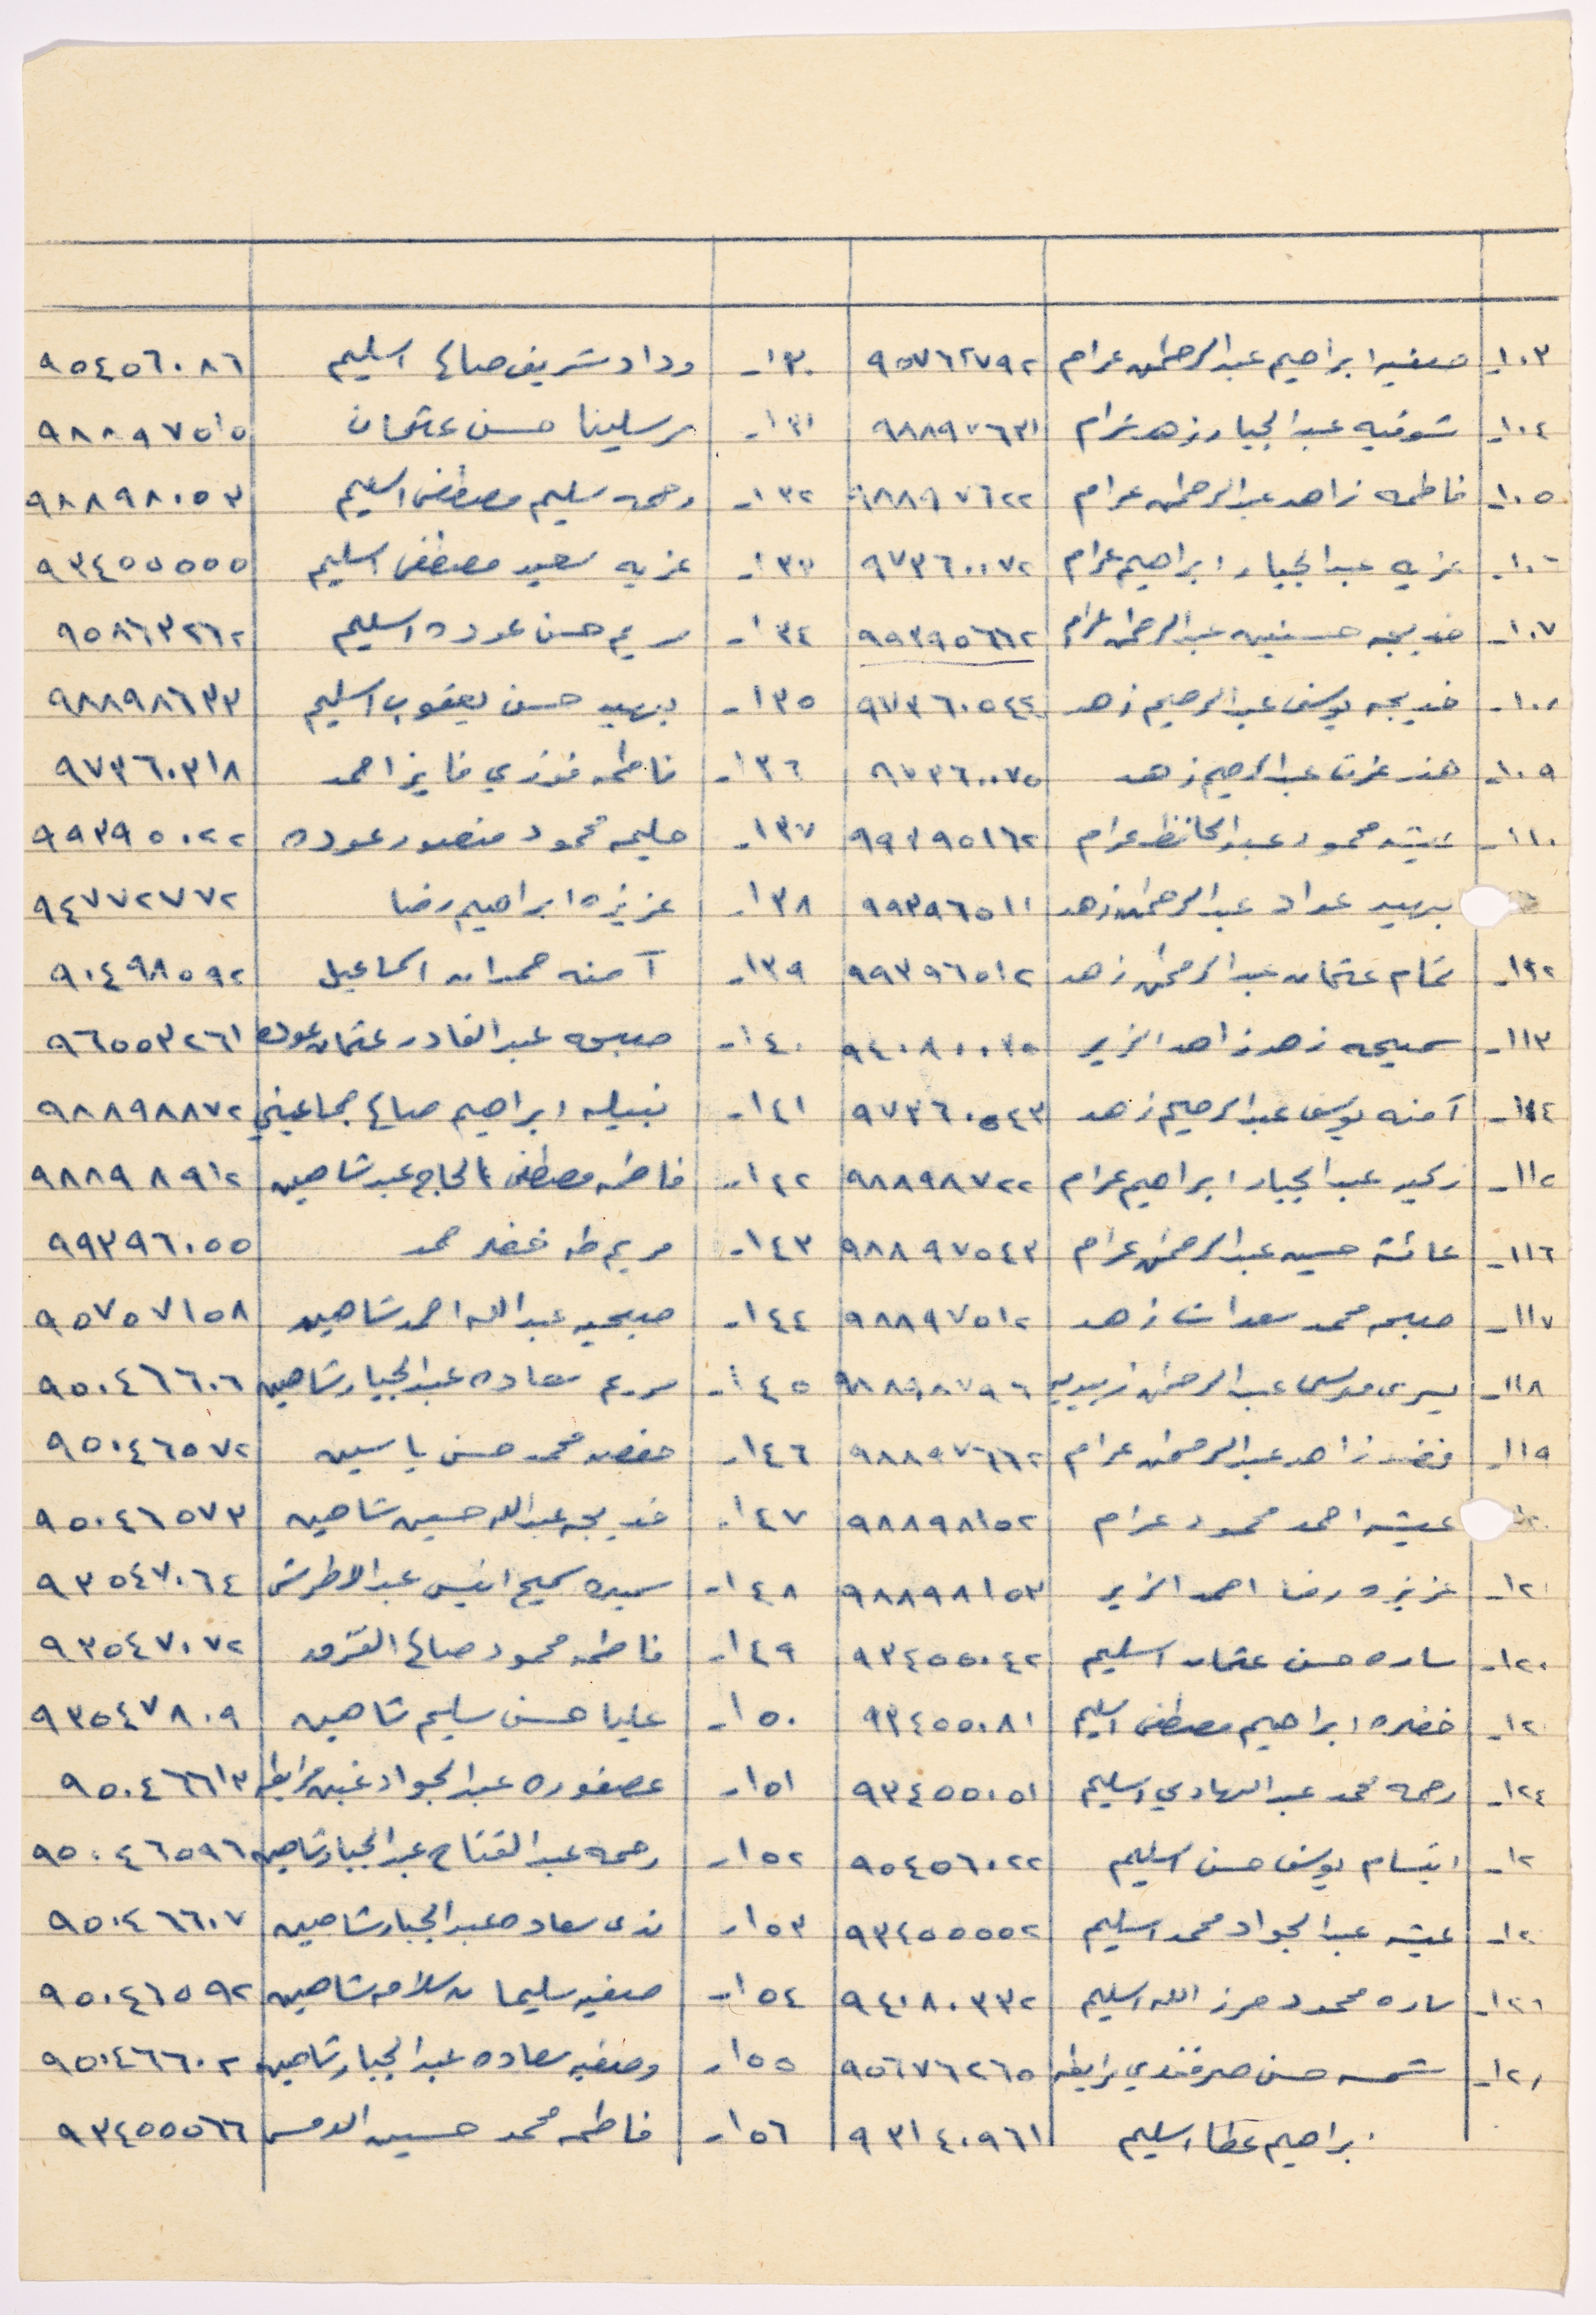 ١٠٣- صفيه ابراهيم عبدالرحمن عرام ٩٥٧٦٢٧٩٢ ١٣٠- وداد شريف صالح اسليم ٩٥٤٥٦٠٨٦
١٠٤- شوقيه عبدالجبار زهد عرام ٩٨٨٩٧٦٣١ ١٣١- مرسلينا حسن عثمان ٩٨٨٩٧٥١٥
١٠٥- فاطمه زاهد عبدالرحمن عرام ٩٨٨٩٧٦٢٢ ١٣٢- رحمه سليم مصطفى اسليم ٩٨٨٩٨٠٥٣
١٠٦- عزيه عبدالجبار ابراهيم عرام ٩٧٣٦٠٠٧٢ ١٣٣- عزيه سعيد مصطفى اسليم ٩٣٤٥٥٥٥٥
١٠٧- خديجه حسنين عبدالرحمن عرام ٩٩٣٩٥٦٦٢ ١٣٤- مريم حسن عوده اسليم ٩٥٨٦٣٢٦٢
١٠٨- خديجه يوسف عبدالرحيم زهد ٩٧٣٦٠٥٤٤ ١٣٥- بهيه حسن يعقوب اسليم ٩٨٨٩٨٦٣٣
١٠٩- هند عزت عبدالرحيم زهد ٩٧٣٦٠٠٧٥ ١٣٦- فاطمه فوزي فايز احمد ٩٧٣٦٠٣١٨
١١٠- عيشه محمود عبدالحافظ عرام ٩٩٣٩٥١٦٢ ١٣٧- حليمه محمود منصور عوده ٩٩٣٩٥٠٢٢
بهيه عواد عبدالرحمن زهد ٩٩٣٩٦٥١١ ١٣٨- عزيزه ابراهيم رضا ٩٤٧٧٢٧٧٢
١١٢- تمام عثمان عبدالرحمن زهد ٩٩٣٩٦٥١٢ ١٣٩- آمنه حمدان اسماعيل ٩٠٤٩٨٥٩٢
١١٣- سميحه زهد زاهد الزير ٩٤٠٨٠٠٣٥ ١٤٠- صبحه عبدالقادر عثمان عوده ٩٦٥٥٣٢٦١
١١٤- آمنه يوسف عبدالرحيم زهد ٩٧٣٦٠٥٤٣ ١٤١- نبيله ابراهيم صالح جماعيني ٩٨٨٩٨٨٧٢
١١٥- زكيه عبدالجبار ابراهيم عرام ٩٨٨٩٨٧٢٢ ١٤٢- فاطمه مصطفى الحاج عبد شاهين ٩٨٨٩٨٩١٢
١١٦- عائشة حسين عبدالرحمن عرام ٩٨٨٩٧٥٤٣ ١٤٣- مريم طه خضر حمد ٩٩٣٩٦٠٥٥
١١٧- صبحه محمد سعدات زهد ٩٨٨٩٧٥١٢ ١٤٤- صبحيه عبدالله احمد شاهين ٩٥٧٥٧١٥٨
١١٨- يسرى موسى عبدالرحمن زبيديه ٩٨٨٩٨٧٩٦ ١٤٥- مريم سعاده عبدالجبار شاهين ٩٥٠٤٦٦٠٦
١١٩- فضه زاهد عبدالرحمن عرام ٩٨٨٩٧٦٦٢ ١٤٦- حفصه محمد حسن ياسين ٩٥٠٤٦٥٧٢
عيشه احمد محمود عرام ٩٨٨٩٨١٥٢ ١٤٧- خديجه عبدالله حسين شاهين ٩٥٠٤٦٥٧٣
١٢١- عزيزه رضا احمد الزير ٩٨٨٩٨١٥٣ ١٤٨- سميره سميح انيس عبد الاطرش ٩٣٥٤٧٠٦٤
ساره حسن عثمان اسليم ٩٣٤٥٥٠٤٢ ١٤٩- فاطمه محمود صالح ٩٣٥٤٧٠٧٢
خضره ابراهيم مصطفى اسليم ٩٣٤٥٥٠٨١ ١٥٠- عليا حسن سليم شاهين ٩٣٥٤٧٨٠٩
١٢٤- رحمه محمد عبدالهادي اسليم ٩٣٤٥٥٠٥١ ١٥١- عصفوره عبدالجواد مرابطه ٩٥٠٤٦٦١٣
ابتسام يوسف حسن اسليم ٩٥٤٥٦٠٢٢ ١٥٢- رحمه عبدالفتاح عبدالجبار شاهين ٩٥٠٤٦٥٩٦
عيشه عبدالجواد محمد اسليم ٩٣٤٥٥٥٥٢ ١٥٣- ندى سعاده عبدالجبار شاهين ٩٥٠٤٦٦٠٧
ساره محمود حرز الله اسليم ٩٤٠٨٠٣٣٢ ١٥٤- صفيه سليمان سلامه شاهين ٩٥٠٤٦٥٩٢
شمسه حسن صرفندي مرابطه ٩٥٦٧٦٢٦٥ ١٥٥- وصفيه سعاده عبدالجبار شاهين ٩٥٠٤٦٦٠٢
ابراهيم عطا اسليم ٩٣١٤٠٩٦١ ١٥٦- فاطمه محمد حسين ٩٣٤٥٥٥٦٦